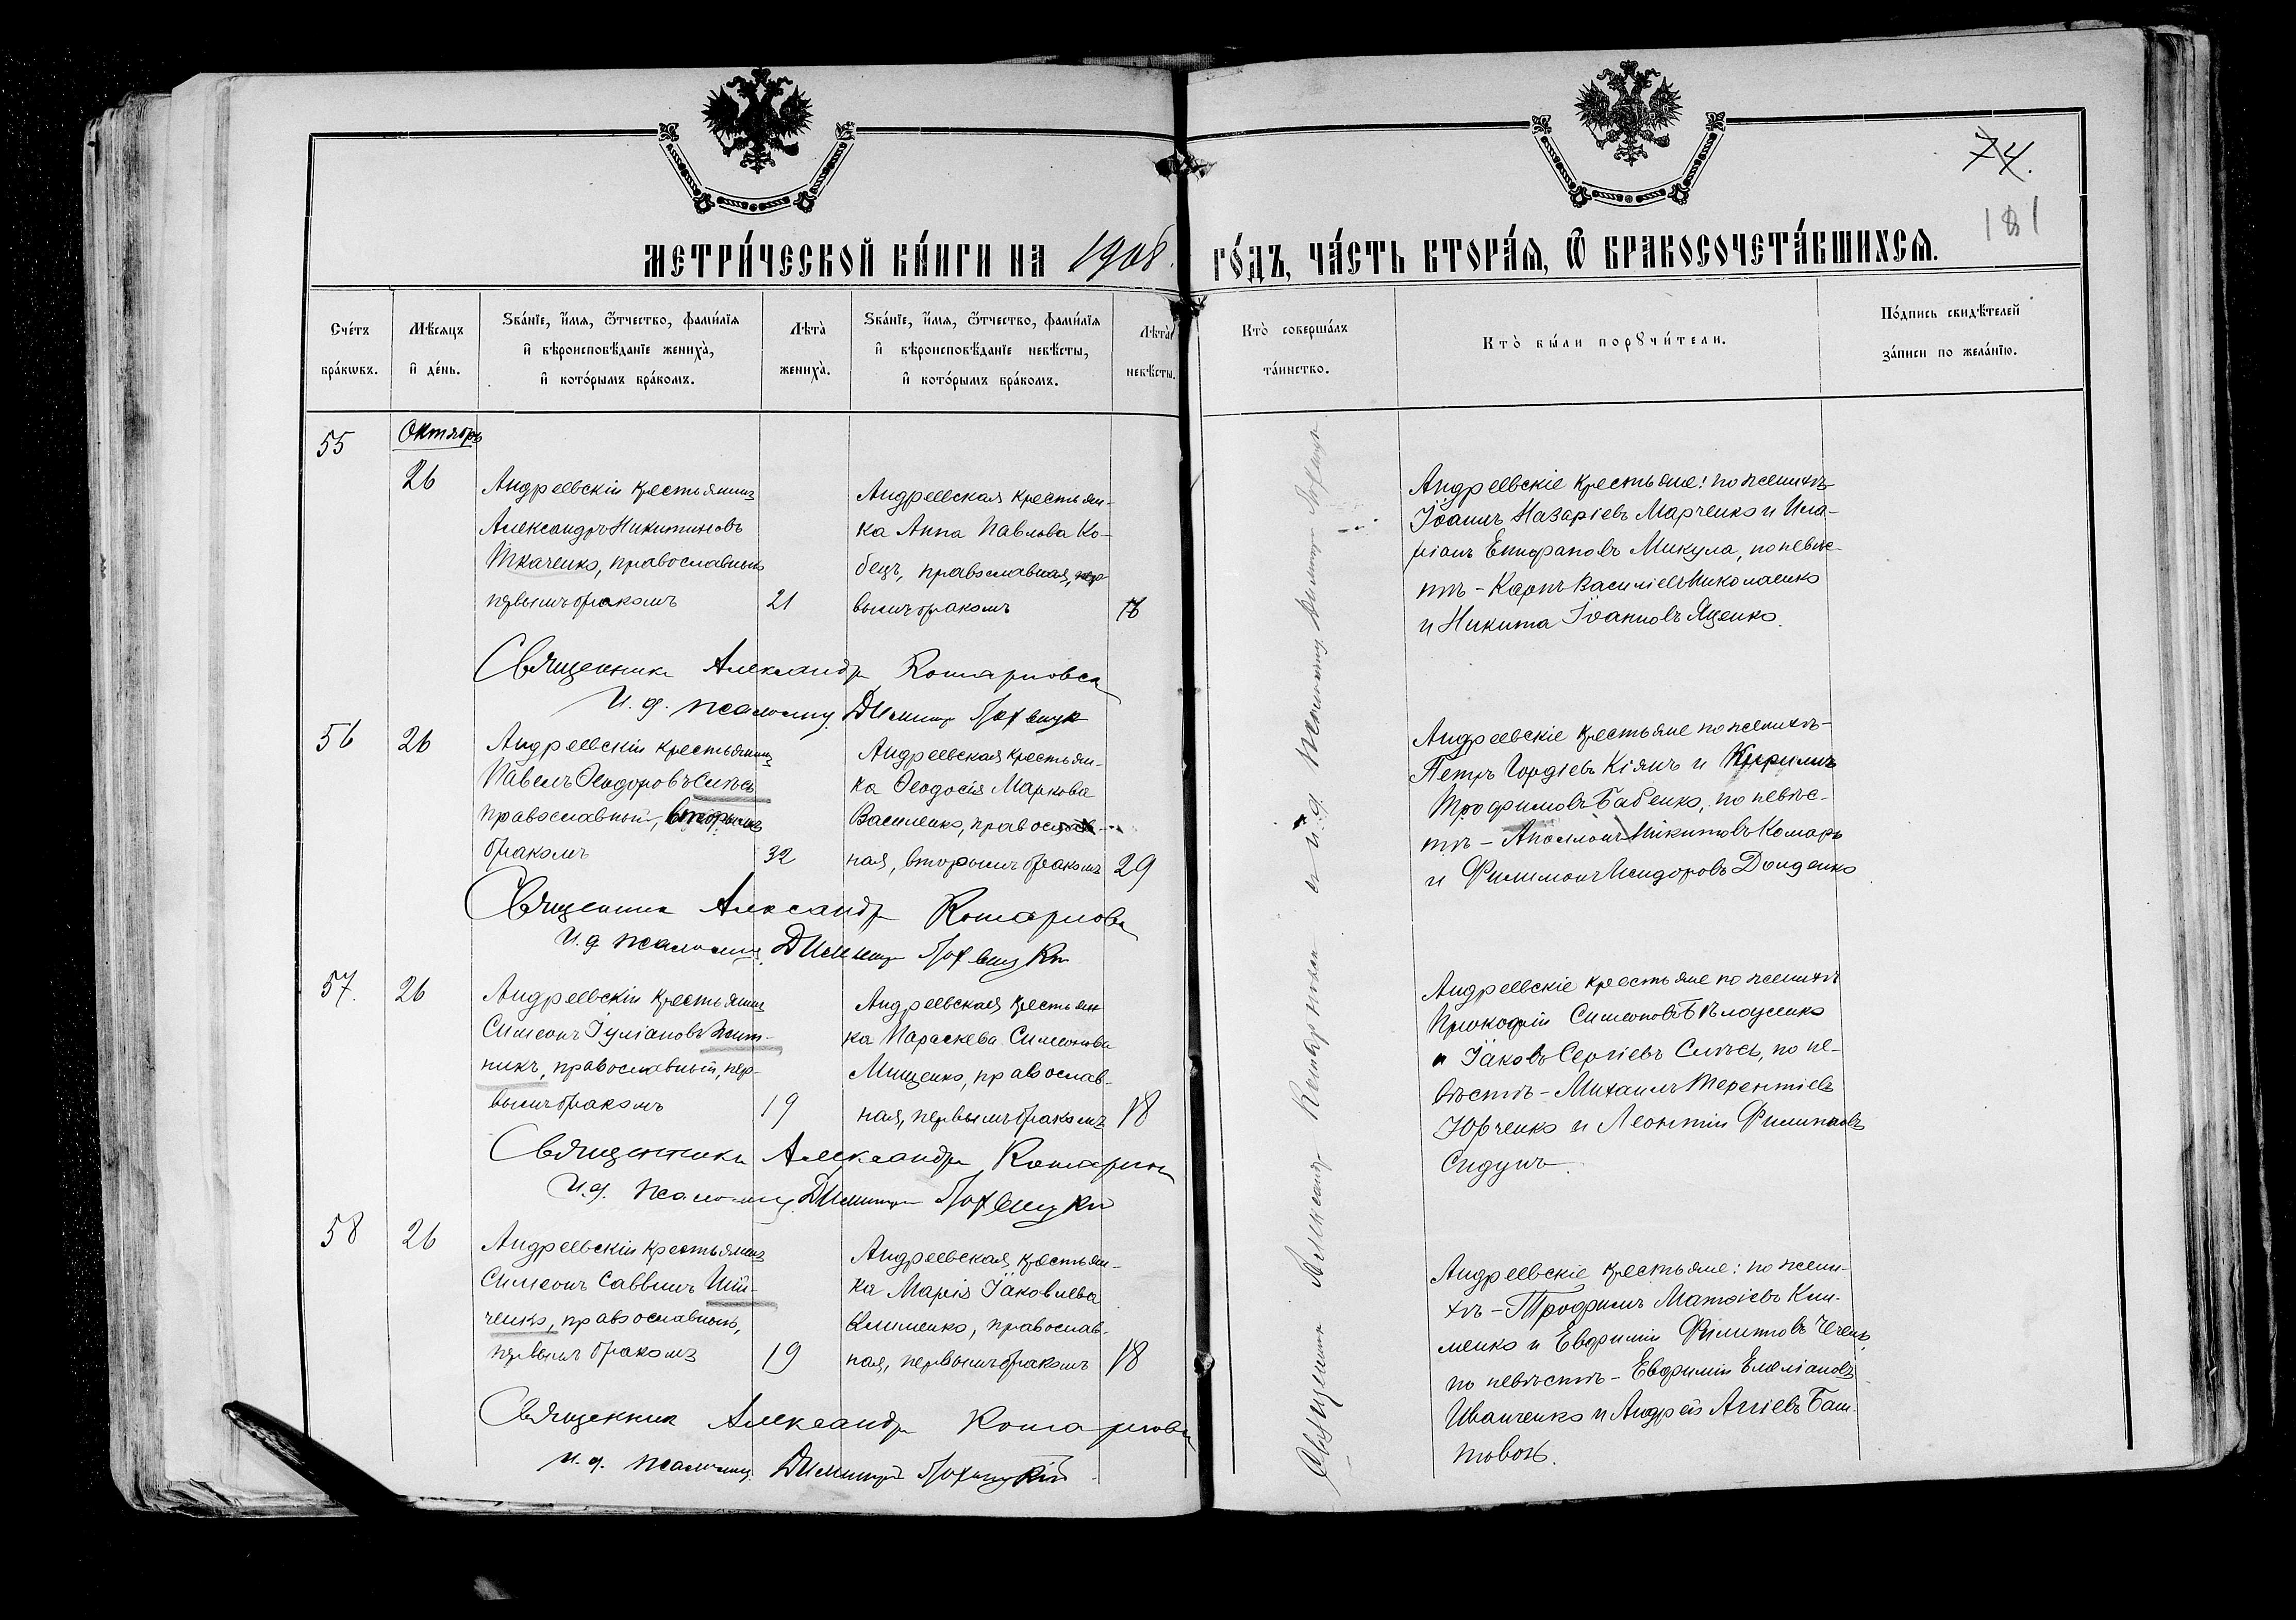 74.
181
МЕТРИ́ЧЕСКОЙ КНИ́ГИ НА 1908. ГО́ДЪ, ЧА́СТЬ ВТОРА́Ѧ, Ѿ БРАКОСОЧЕТА́ВШИХСѦ.
Сче́тъ бра́кѡвъ.
Мѣ́сѧцъ и҆ де́нь.
Ѕва́нїе, и҆́мѧ, ѻ҆́тчество, фами́лїѧ
и҆ вѣроисповѣ́данїе жениха̀,
и҆ кото́рымъ бра́комъ.
Лѣта̀ жениха̀.
Ѕва́нїе, и҆́мѧ, ѻ҆́тчество, фами́лїѧ
и҆ вѣроисповѣ́данїе невѣ́сты,
и҆ кото́рымъ бра́комъ.
Лѣта̀ невѣ́сты.
Кто̀ соверша́лъ
та́инство.
Кто̀ бы́ли порꙋчи́тели.
По́дпись свидѣ́телей
за́писи по жела́нїю.
55
Октябрь
26
Андреевскій крестьянинъ
Александръ Никитиновъ
Ткаченко, православный
первымъ бракомъ
21
Андреевская крестьян-
ка Анна Павлова Ко-
бецъ, православная, пер-
вымъ бракомъ
18
Андреевскіе крестьяне: по женихѣ
Іоаннъ Назаріевъ Марченко и Ила-
ріонъ Епифановъ Микула, по невѣс-
тѣ - Карпъ Василіевъ Николаенко
и Никита Іоанновъ Яценко.
Священникъ Александръ
И. д. псаломщ. Димитр
56
26
Андреевскій крестьянинъ
Павелъ Ѳеодоровъ Сиѣсь
православный, вторымъ
бракомъ
32
Андреевская крестьян-
ка Ѳеодосія Маркова
Василенко, православ-
ная, вторымъ бракомъ
29
Андреевскіе крестьяне по женихѣ-
Петръ Гордіевъ Кіянъ и Кириллъ
Трофимовъ Бабенко, по невѣс-
тѣ - Аполлонъ Никитовъ Комаръ
и Филимонъ Исидоровъ
Священникъ Александръ
И. д. псаломщ. Димитр
57.
26
Андреевскій крестьянинъ
Симеонъ Іуліановъ Жит-
никъ, православный, пер-
вымъ бракомъ
19
Андреевская крестьян
ка Параскева Симеонова
Мищенко, православ-
ная, первымъ бракомъ
18
Андреевскіе крестьяне по женихѣ
Прокофій Симеоновъ Бѣлоусенко
и Іаковъ Сергіевъ Сиѣсь, по не-
вѣстѣ - Михаилъ Терентіевъ
Юрченко и Леонтій Филиповъ
Сидунъ.
Священникъ Александръ
И. д. псаломщ. Димитр
58
26
Андреевскій крестьянинъ
Симеонъ Саввинъ
ченко, православный,
первымъ бракомъ
19
Андреевская крестьян-
ка Марія Іаковлева
Клименко, православ-
ная, первымъ бракомъ
18
Андреевскіе крестьяне: по жени-
хѣ - Трофимъ Матѳіевъ Кли-
менко и Евфимій Филиповъ
по невѣстѣ - Евфимій Емеліановъ
Иванченко и Андрей Баш-
товой.
Священникъ Александръ
И. д. псаломщ. Димитрій
Священникъ Александръ и и. д. псаломщ. Димитр